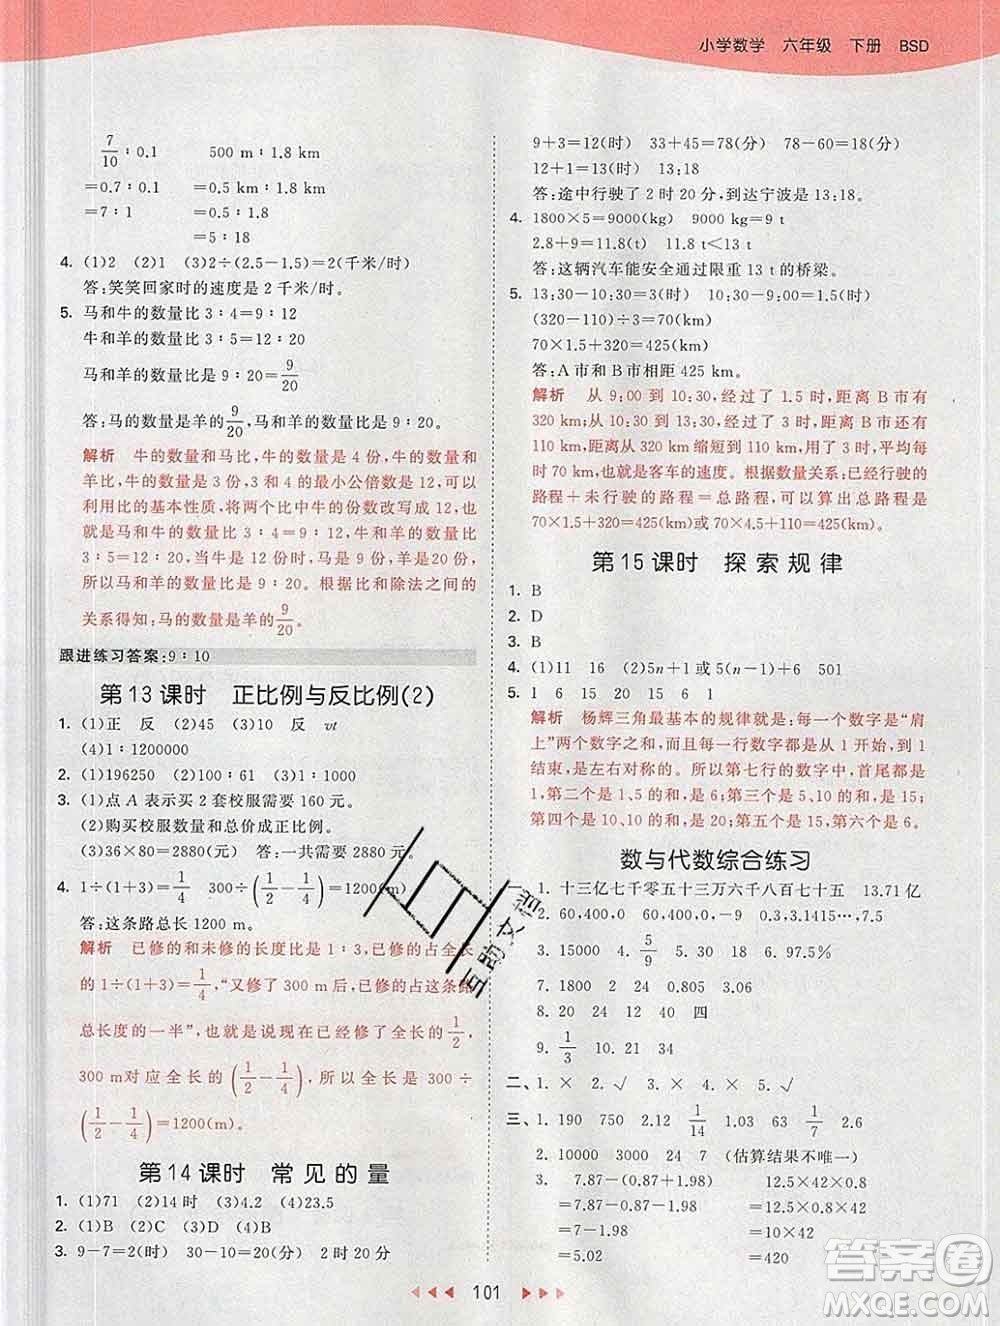 小学数学 六年级 下册 BSD
7/10∶0.1 500 m∶1.8 km
=0.7∶0.1 =0.5 km∶1.8 km
=7∶1 =0.5∶1.8
=5∶18
4. (1)2 (2)1 (3)2÷(2.5-1.5)=2(千米/时)
答:笑笑回家时的速度是 2 千米/时。
5. 马和牛的数量比 3∶4=9∶12
牛和羊的数量比 3∶5=12∶20
马和羊的数量比是 9∶20=9/20
答:马的数量是羊的9/20。
解析 牛的数量和马比,牛的数量是 4 份,牛的数量和
羊比,牛的数量是 3 份,3 和 4 的最小公倍数是 12,可
以利用比的基本性质,将两个比中牛的份数改写成 12,也
就是马和牛的数量比是 3∶4=9∶12,牛和羊的数量比是
3∶5=12∶20,当牛是 12份时,马是 9份,羊是20份,
所以马和羊的数量比是 9∶20。根据比和除法之间的
关系得出:马的数量是羊的9/20。
跟进练习答案:9∶10
第 13 课时 正比例与反比例(2)
1. (1)正 反 (2)45 (3)10 反 vt
(4)1∶1200000
2. (1)196250 (2)100∶1 (3)1∶1000
3. (1)点 A 表示买 2 套校服需要 160 元。
(2)购买校服数量和总价成正比例。
(3)36×80=2880(元) 答:一共需要 2880 元。
4. 1÷(1+3)=1/4 300÷(1/2-1/4)=1200(m)
答:这条路总长 1200 m。
解析 已修的和未修的长度比是 1∶3,已修的占全长
的 1÷(1+3)=1/4,“又修了 300 m后,已修的占这条路
总长度的一半”,也就是说现在已经修了全长的1/2,
300 m对应全长的(1/2-1/4),所以全长是 300÷
(1/2-1/4)=1200(m)。
第 14 课时 常见的量
1. (1)71 (2)14时 (3)4.2 (4)23.5
2. (1)B (2)C (3)D (4)B
3. 9-7=2(时) 30-10=20(分) 2 时 20 分
9+3=12(时) 33+45=78(分) 78-60=18(分)
12+1=13(时) 13:18
答:途中行驶了 2 时 20 分,到达宁波是 13:18。
4. 1800×5=9000(kg) 9000 kg=9 t
2.8+9=11.8(t) 11.8 t<13 t
答:这辆汽车能安全通过限重 13 t 的桥梁。
5. 13:30-10:30=3(时) 10:30-9:00=1.5(时)
(320-110)÷3=70(km)
70×1.5+320=425(km)
答:A 市和 B 市相距 425 km。
解析 从 9:00 到 10:30,经过了 1.5 时,距离 B 市有
320 km;从 10:30 到 13:30,经过了 3 时,距离 B 市还有
110 km,距离从 320 km 缩短到 110 km,用了 3 时,平均每
时 70 km,也就是客车的速度。根据数量关系:已经行驶的
路程+未行驶的路程=总路程,可以算出总路程是
70×1.5+320=425(km)或 70×4.5+110=425(km)。
第 15 课时 探索规律
1. B
2. D
3. B
4. (1)11 16 (2)5n+1 或 5(n-1)+6 501
5. 1 6 15 20 15 6 1
解析 杨辉三角最基本的规律就是:每一个数字是“肩
上”两个数字之和,而且每一行数字都是从 1 开始,到 1
结束,是左右对称的。所以第七行的数字中,首尾都是
1,第二个是 1、5 的和,是 6;第三个是 5、10 的和,是 15;
第四个是 10、10 的和,是 20;第五个是 15,第六个是 6。
数与代数综合练习
一、1. 十三亿七千零五十三万六千八百七十五 13.71 亿
2. 60,400,0 60,400,0,-9 0.3,3.1415…,7.5
3. 15000 4. 5/9 5. 100 6. 97.5%
7. 1800 2 24 0.805 3.06
8. 20 24 12 40 四
9. 1/3 10. 21 34
二、1. × 2. √ 3. × 4. × 5. √
三、1. 190 750 2.12 1/14 1.03 63 1/7 2
2. 10000 3000 24 7 (估算结果不唯一)
3. 7.87-(0.87+1.98) 12.5×42×0.8
=7.87-0.87-1.98 =12.5×0.8×42
=7-1.98 =10×42
=5.02 =420
101
答案圈
MXQE.COM